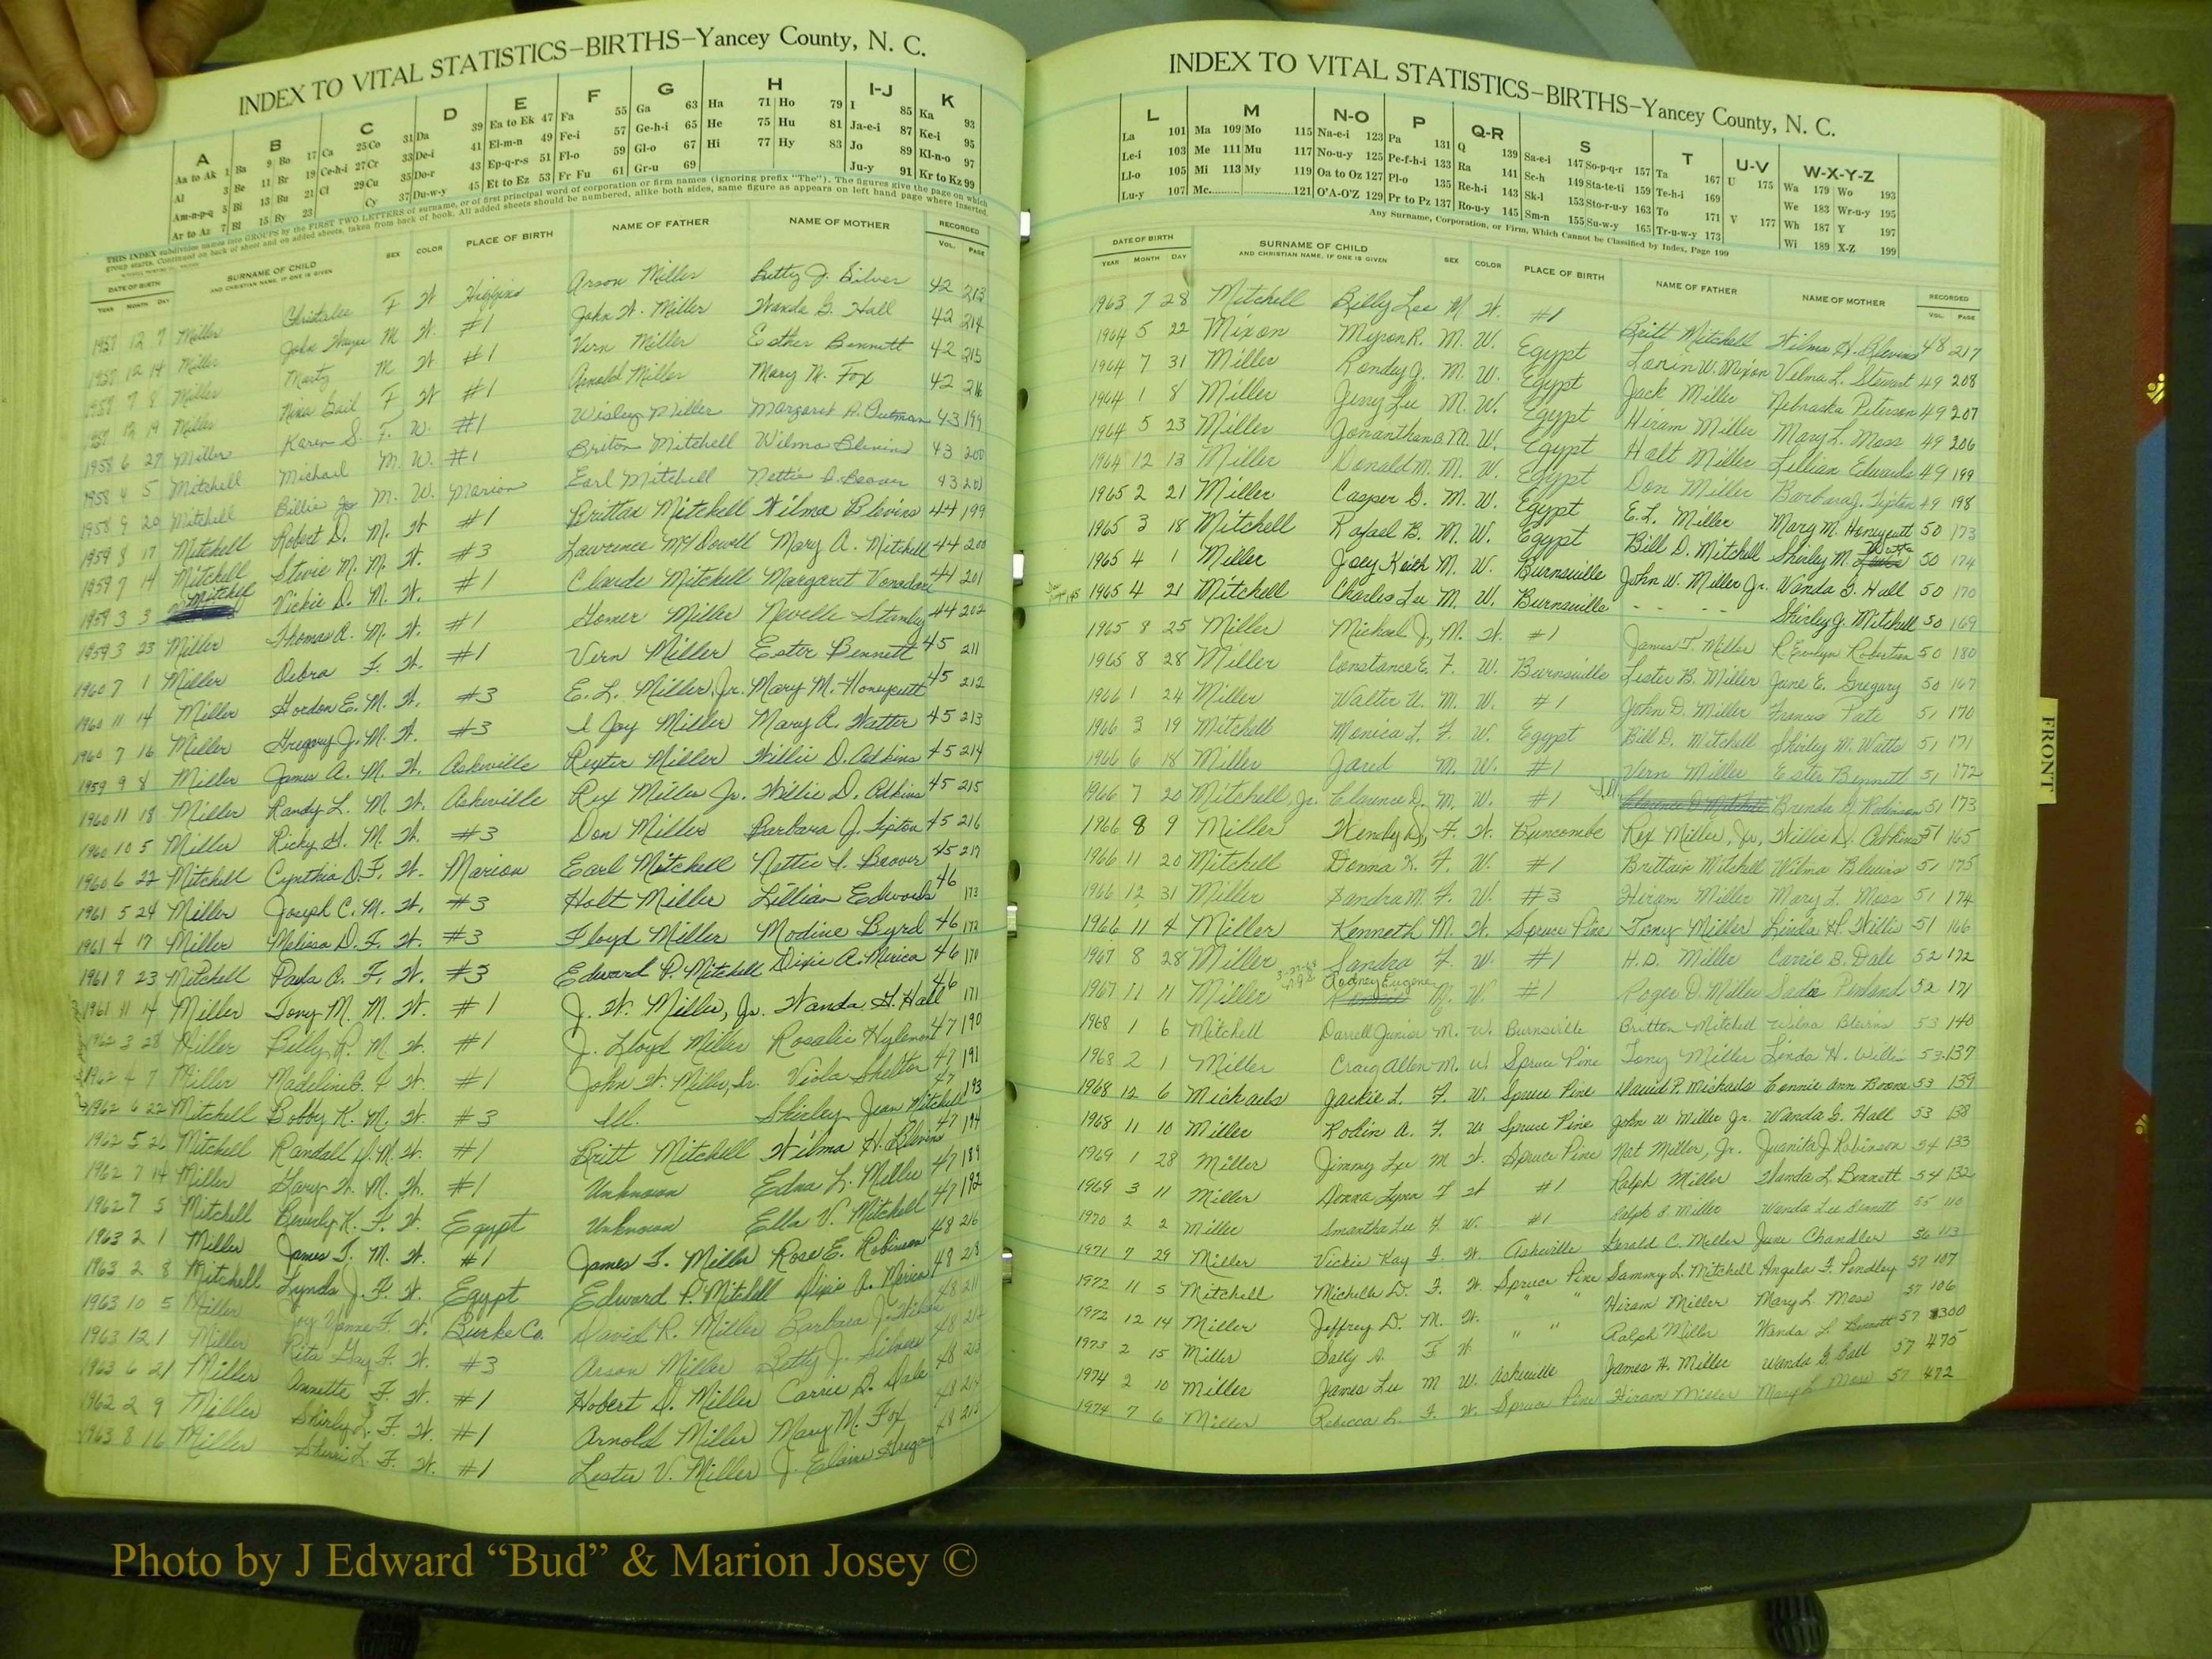 INDEX TO VITAL STATISTICS–BIRTHS–Yancey County, N. C.
A B C D E F G H I-J K
Aa to Ak 1 Ba 9 Bo 17 Ca 25 Co 31 Da 39 Ea to Ek 47 Fa 55 Ga 63 Ha 71 Ho 79 I 85 Ka 93
Al 3 Be 11 Br 19 Ce-h-i 27 Cr 33 De-i 41 El-m-n 49 Fe-i 57 Ge-h-i 65 He 75 Hu 81 Ja-e-i 87 Ke-i 95
Am-n-p-q 5 Bi 13 Bu 21 Cl 29 Cu 35 Do-r 43 Ep-q-r-s 51 Fl-o 59 Gl-o 67 Hi 77 Hy 83 Jo 89 Kl-n-o 97
Ar to Az 7 Bl 15 By 23 Cy 37 Du-w-y 45 Et to Ez 53 Fr Fu 61 Gr-u 69 Ju-y 91 Kr to Kz 99
THIS INDEX subdivides names into GROUPS by the FIRST TWO LETTERS of surname, or of first principal word of corporation or firm names (ignoring prefix "The"). The figures give the page on which
group starts. Continued on back of sheet and on added sheets, taken from back of book. All added sheets should be numbered, alike both sides, same figure as appears on left hand page where inserted.
DATE OF BIRTH SURNAME OF CHILD SEX COLOR PLACE OF BIRTH NAME OF FATHER NAME OF MOTHER RECORDED
YEAR MONTH DAY AND CHRISTIAN NAME, IF ONE IS GIVEN VOL. PAGE
1957 12 7 Miller Christalee F W Higgins Arson Miller Betty J. Silver 42 213
1957 12 14 Miller John Wayne M W. #1 John W. Miller Wanda G. Hall 42 214
1957 7 8 Miller Marty M W #1 Vern Miller Esther Bennett 42 215
1957 12 19 Miller Nina Gail F W #1 Arnold Miller Mary M. Fox 42 216
1958 6 27 Miller Karen S. F. W. #1 Wisley Miller Margaret A. Putman 43 199
1958 4 5 Mitchell Michael M. W. #1 Briton Mitchell Wilma Blevins 43 200
1958 9 20 Mitchell Billie Joe M. W. Marion Earl Mitchell Nettie D. Beaver 43 201
1959 8 17 Mitchell Robert D. M. W #1 Brittan Mitchell Wilma Blevins 44 199
1959 7 14 Mitchell Stevie M. M. W. #3 Lawrence McDowell Mary A. Mitchell 44 200
1959 3 3 Mitchell Vickie D. M. W. #1 Claude Mitchell Margaret 44 201
1959 3 23 Miller Thomas A. M. W. #1 Homer Miller Nevelle Stamley 44 202
1960 7 1 Miller Debra F. W. #1 Vern Miller Ester Bennett 45 211
1960 11 14 Miller Gordon E. M. W. #3 E. L. Miller, Jr. Mary M. Honeycutt 45 212
1960 7 16 Miller Gregory J. M. W. #3 I Joy Miller Mary A. Watter 45 213
1959 9 8 Miller James A. M. W. Asheville Rexter Miller Willie D. Adkins 45 214
1960 11 18 Miller Randy L. M. W. Asheville Rex Miller Jr. Willie D. Adkins 45 215
1960 10 5 Miller Ricky H. M. W. #3 Don Miller Barbara J. Tipton 45 216
1960 6 22 Mitchell Cynthia D. F. W. Marion Earl Mitchell Nettie I. Beaver 45 217
1961 5 24 Miller Joseph C. M. W. #3 Holt Miller Lillian Edwards 46 173
1961 4 17 Miller Melissa D. F. W. #3 Floyd Miller Modine Byrd 46 172
1961 7 23 Mitchell Paula A. F. W. #3 Edward P. Mitchell Dixie A. Merica 46 170
1961 11 14 Miller Tony M. M. W. #1 J. W. Miller, Jr. Wanda G. Hall 46 171
1962 3 28 Miller Billy R. M. W. #1 J. Lloyd Miller Rosalie Hylemon 47 190
1962 4 7 Miller Madeline B. F. W. #1 John W. Miller, Sr. Viola Shelton 47 191
1962 6 22 Mitchell Bobby K. M. W. #3 Ill. Shirley Jean Mitchell 47 193
1962 5 26 Mitchell Randall D. M. W. #1 Britt Mitchell Wilma H. Blevins 47 194
1962 7 14 Miller Gary W. M. W. #1 Unknown Edna L. Miller 47 189
1962 7 5 Mitchell Beverly K. F. W. Egypt Unknown Ella V. Mitchell 47 192
1963 2 1 Miller James T. M. W. #1 James T. Miller Rose E. Robinson 48 216
1963 2 8 Mitchell Lynda J. F. W. Egypt Edward P. Mitchell Dixie A. Merica 48 218
1963 10 5 Miller Joy Yonne F. W. Burke Co. David R. Miller Barbara J. 48
1963 12 1 Miller Rita Gay F. W. #3 Arson Miller Betty J. Silver 48
1963 6 21 Miller Annette F. W. #1 Hobert D. Miller Carrie B. Dale 48
1962 2 9 Miller Shirley L. F. W. #1 Arnold Miller Mary M. Fox 48
1963 8 16 Miller Sherri L. F. W. #1 Lester V. Miller J. Elaine 48
INDEX TO VITAL STATISTICS–BIRTHS–Yancey County, N. C.
L M N-O P Q-R S T U-V W-X-Y-Z
La 101 Ma 109 Mo 115 Na-e-i 123 Pa 131 Q 139 Sa-e-i 147 So-p-q-r 157 Ta 167 U 175 Wa 179 Wo 193
Le-i 103 Me 111 Mu 117 No-u-y 125 Pe-f-h-i 133 Ra 141 Sc-h 149 Sta-te-ti 159 Te-h-i 169 We 183 Wr-u-y 195
Ll-o 105 Mi 113 My 119 Oa to Oz 127 Pl-o 135 Re-h-i 143 Sk-l 153 Sto-r-u-y 163 To 171 V 177 Wh 187 Y 197
Lu-y 107 Mc 121 O'A-O'Z 129 Pr to Pz 137 Ro-u-y 145 Sm-n 155 Su-w-y 165 Tr-u-w-y 173 Wi 189 X-Z 199
Any Surname, Corporation, or Firm, Which Cannot be Classified by Index, Page 199
DATE OF BIRTH SURNAME OF CHILD SEX COLOR PLACE OF BIRTH NAME OF FATHER NAME OF MOTHER RECORDED
YEAR MONTH DAY AND CHRISTIAN NAME, IF ONE IS GIVEN VOL. PAGE
1963 7 28 Mitchell Billy Lee M W. #1 Britt Mitchell Wilma H. Blevins 48 217
1964 5 22 Mixon Myron R. M. W. Egypt Lorin W. Mixon Velma L. Stewart 49 208
1964 7 31 Miller Rondey J. M. W. Egypt Jack Miller Nebraska Peterson 49 207
1964 1 8 Miller Jerry Lee M. W. Egypt Hiram Miller Mary L. Moss 49 206
1964 5 23 Miller Jonanthan B. M. W. Egypt Halt Miller Lillian Edwards 49 199
1964 12 13 Miller Donald M. M. W. Egypt Don Miller Barbara J. Tipton 49 198
1965 2 21 Miller Casper G. M. W. Egypt E. L. Miller Mary M. Honeycutt 50 173
1965 3 18 Mitchell Rafael B. M. W. Egypt Bill D. Mitchell Shirley M. Watts 50 174
1965 4 1 Miller Joey Keith M. W. Burnsville John W. Miller Jr. Wanda G. Hall 50 170
1965 4 21 Mitchell Charles Lee M. W. Burnsville - - - - Shirley J. Mitchell 50 169
1965 8 25 Miller Michael J., M. W. #1 James T. Miller R. Evelyn Robertson 50 180
1965 8 28 Miller Constance E. F. W. Burnsville Lester B. Miller Jane E. Gregory 50 167
1966 1 24 Miller Walter U. M. W. #1 John D. Miller Francis Pate 51 170
1966 3 19 Mitchell Monica L. F. W. Egypt Bill D. Mitchell Shirley M. Watts 51 171
1966 6 18 Miller Jared M. W. #1 Vern Miller Ester Bennett 51 172
1966 7 20 Mitchell, Jr. Clarence D. M. W. #1 Ill. Clarence D Mitchell Brenda G. Robinson 51 173
1966 8 9 Miller Wendy D., F. W. Buncombe Rex Miller, Jr., Willie D. Adkins 51 165
1966 11 20 Mitchell Donna K. F. W. #1 Brittain Mitchell Wilma Blevins 51 175
1966 12 31 Miller Sandra M. F. W. #3 Hiram Miller Mary L. Moss 51 174
1966 11 4 Miller Kenneth M. W. Spruce Pine Tony Miller Linda H. Willis 51 166
1967 8 28 Miller Sandra F. W. #1 H. D. Miller Carrie B. Dale 52 172
1967 11 11 Miller Rodney Eugene M. W. #1 Roger D. Miller Sadie Penland 52 171
1968 1 6 Mitchell Darrell Junior M. W. Burnsville Britton Mitchell Wilma Blevins 53 140
1968 2 1 Miller Craig Allen M. W. Spruce Pine Tony Miller Linda H. Willis 53 137
1968 12 6 Michaels Jackie L. F. W. Spruce Pine David P. Michaels Connie Ann Boone 53 139
1968 11 10 Miller Robin A. F. W Spruce Pine John W Miller Jr. Wanda G. Hall 53 138
1969 1 28 Miller Jimmy Lee M W. Spruce Pine Nat Miller, Jr. Juanita J Robinson 54 133
1969 3 11 Miller Donna Lynn F W #1 Ralph Miller Wanda L. Bennett 54 132
1970 2 2 Miller Smantha Lee F. W. #1 Ralph S. Miller Wanda Lee Bennett 55 110
1971 7 29 Miller Vickie Kay F. W. Asheville Gerald C. Miller June Chandler 56 113
1972 11 5 Mitchell Michelle D. F. W. Spruce Pine Sammy L. Mitchell Angela F. Pendley 57 107
1972 12 14 Miller Jeffrey D. M. W. " " Hiram Miller Mary L. Moss 57 106
1973 2 15 Miller Sally A. F W. " " Ralph Miller Wanda L. Bennett 57 300
1974 2 10 Miller James Lee M W. Asheville James H. Miller Wanda G. Ball 57 475
1974 7 6 Miller Rebecca L. F. W. Spruce Pine Hiram Miller Mary L Moss 57 472
FRONT
Photo by J Edward “Bud” & Marion Josey ©